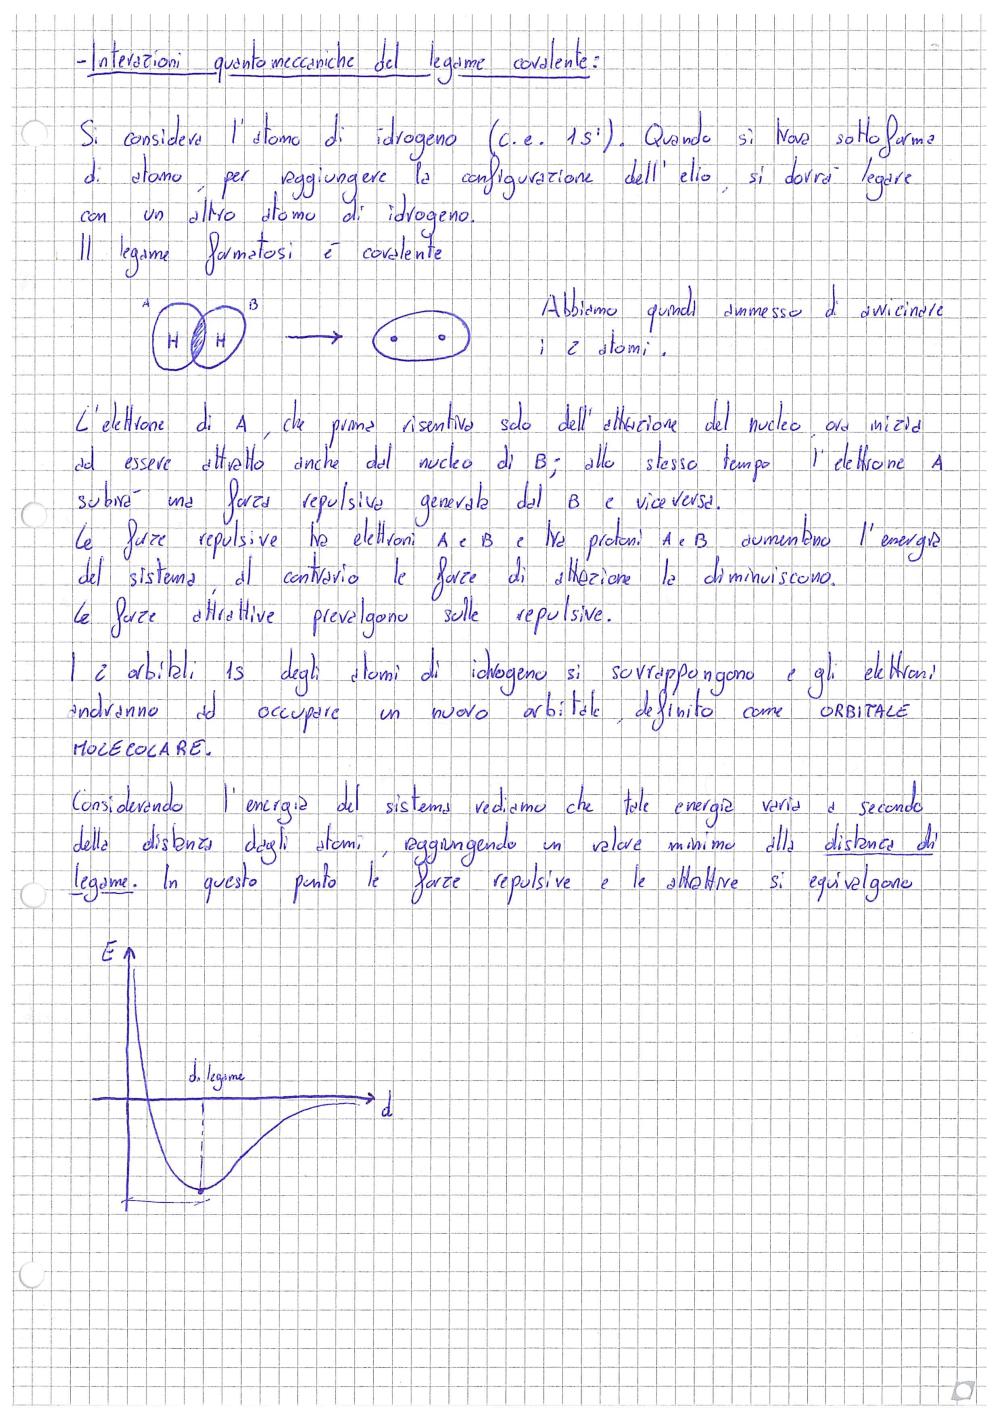 -Interazioni quantomeccaniche del legame covalente:
Si considera l'atomo di idrogeno (c.e. 1s¹). Quando si trova sottoforma
di atomo, per raggiungere la configurazione dell'elio, si dovrà legare
con un altro atomo di idrogeno.
Il legame formatosi è covalente
A B
H H
Abbiamo quindi ammesso di avvicinare
i 2 atomi.
L'elettrone di A, che prima risentiva solo dell'attrazione del nucleo, ora inizia
ad essere attratto anche dal nucleo di B; allo stesso tempo l'elettrone A
subirà una forza repulsiva generata dal B e viceversa.
Le forze repulsive tra elettroni A e B e tra protoni A e B aumentano l'energia
del sistema, al contrario le forze di attrazione la diminuiscono.
Le forze attrattive prevalgono sulle repulsive.
I 2 orbitali 1s degli atomi di idrogeno si sovrappongono e gli elettroni
andranno ad occupare un nuovo orbitale, definito come ORBITALE
MOLECOLARE.
Considerando l'energia del sistema vediamo che tale energia varia a seconda
della distanza dagli atomi, raggiungendo un valore minimo alla distanza di
legame. In questo punto le forze repulsive e le attrattive si equivalgono
E
d. legame
d